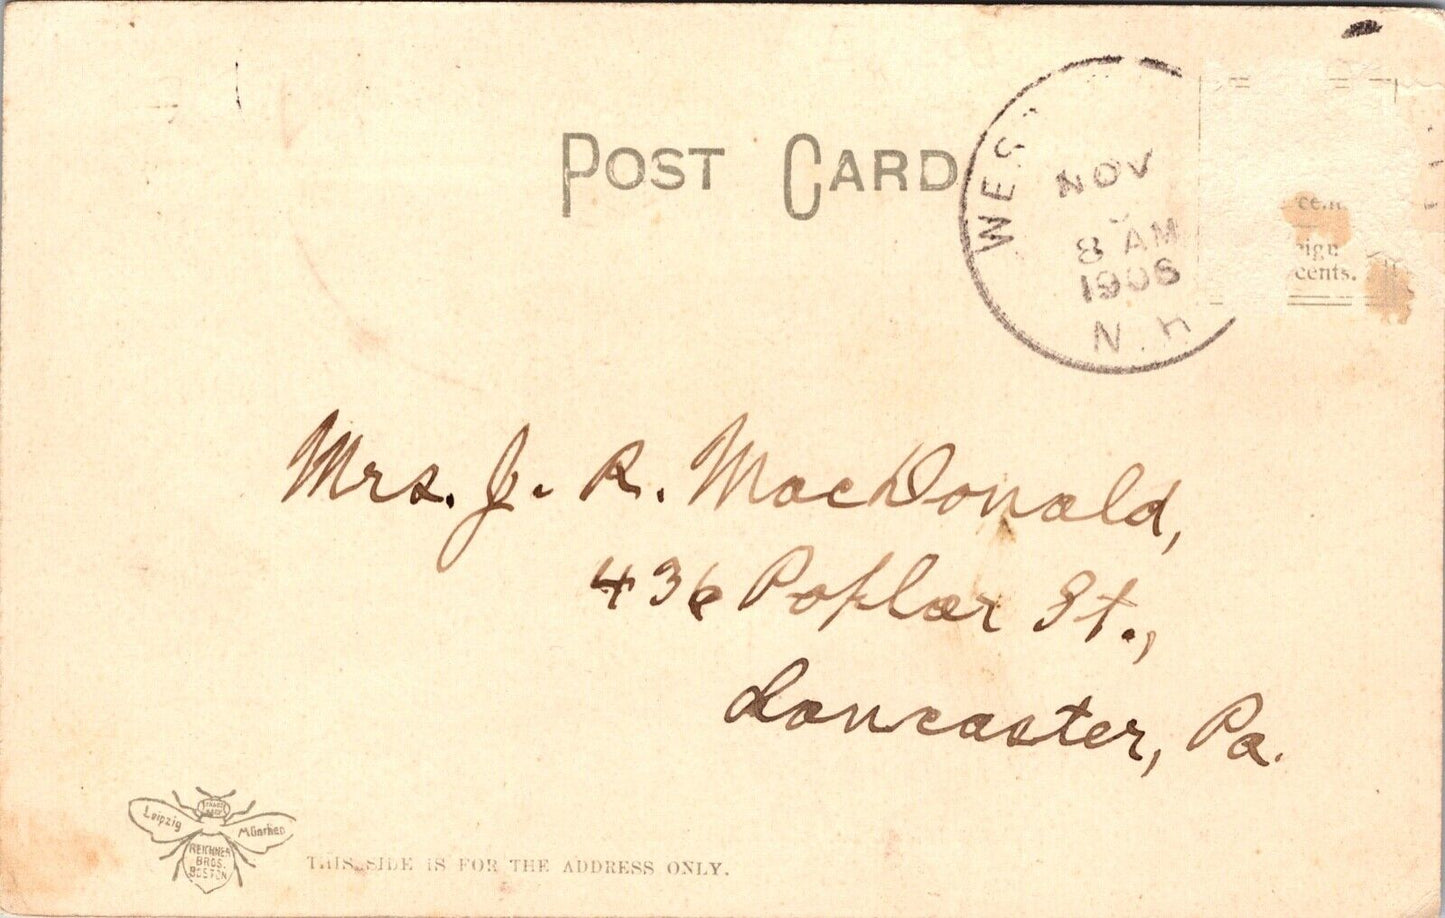 POST CARD
WES
NOV
8 AM
1906
N.H
cen
eign
cents.
Mrs. J. R. MacDonald,
436 Poplar St.,
Lancaster, Pa.
Leipzig
München
REICHNER
BROS.
BOSTON
THIS SIDE IS FOR THE ADDRESS ONLY.